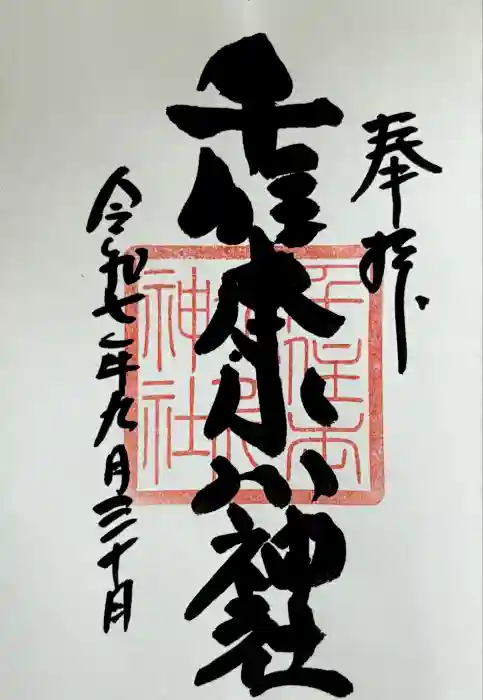 奉拝
千住本氷川神社
令和七年九月三十日
千住本
氷川
神社